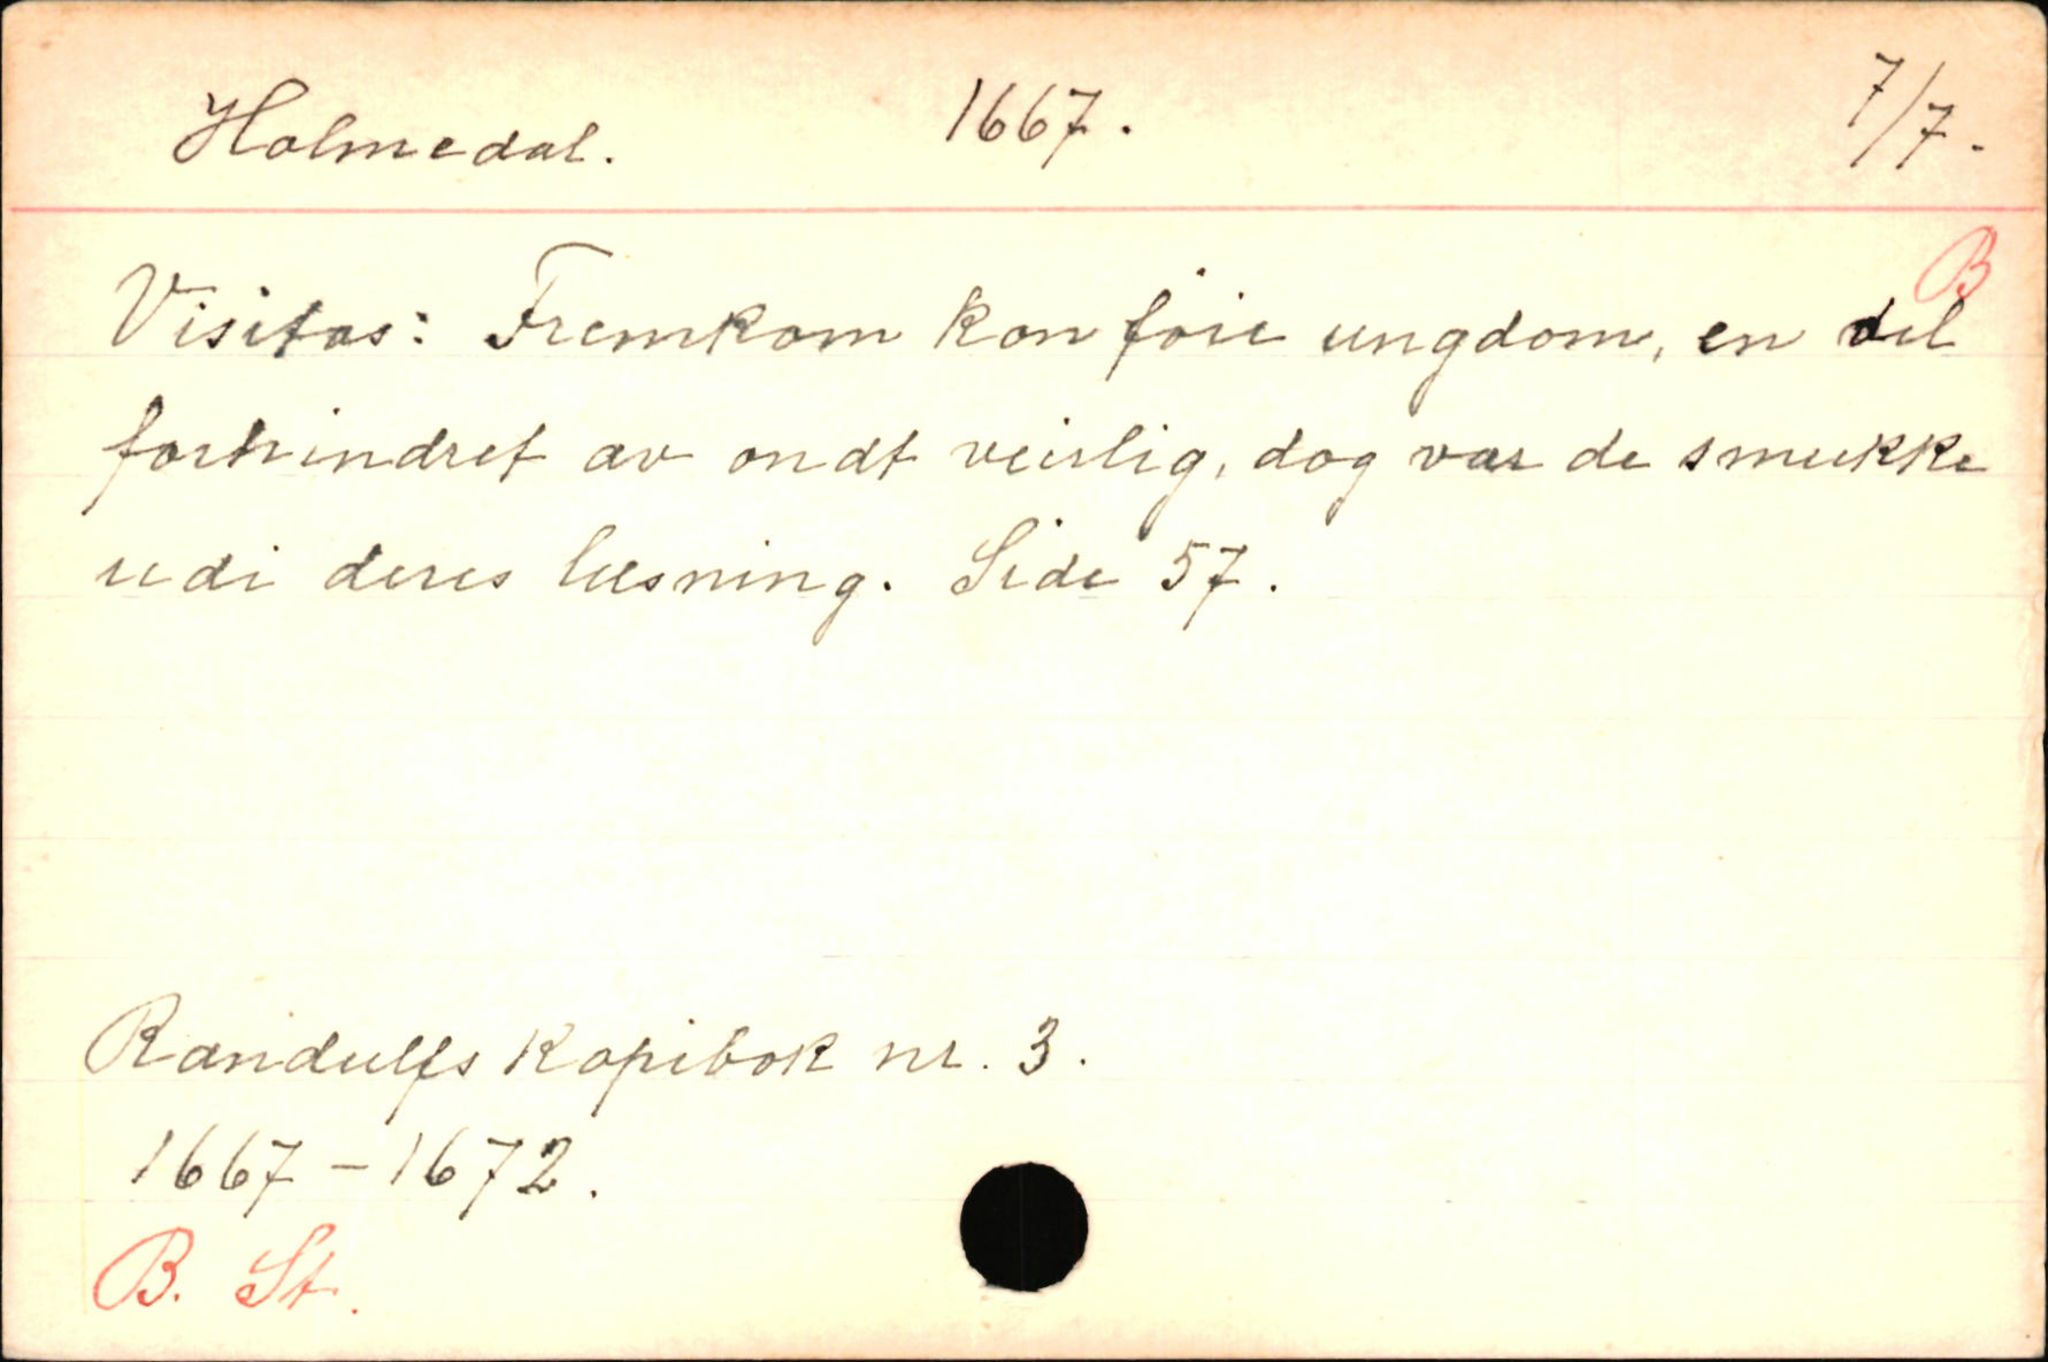 Holmedal. 1667. 7/7.
B
Visitas: Fremkom kon föie ungdom, en del
forhindret av ondt veirlig, dog var de smukke
udi deres læsning. Side 57.
Randulfs Kopibok nr. 3.
1667-1672.
B. St.